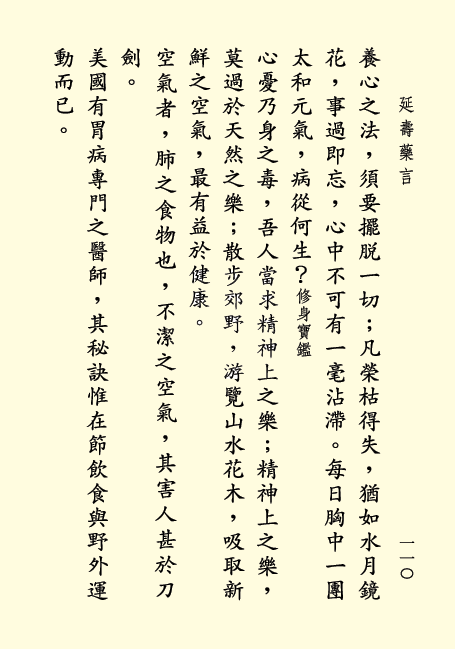 延壽藥言
一一〇
養心之法，須要擺脫一切；凡榮枯得失，猶如水月鏡
花，事過即忘，心中不可有一毫沾滯。每日胸中一團
太和元氣，病從何生？修身寶鑑
心憂乃身之毒，吾人當求精神上之樂；精神上之樂，
莫過於天然之樂；散步郊野，游覽山水花木，吸取新
鮮之空氣，最有益於健康。
空氣者，肺之食物也，不潔之空氣，其害人甚於刀
劍。
美國有胃病專門之醫師，其秘訣惟在節飲食與野外運
動而已。